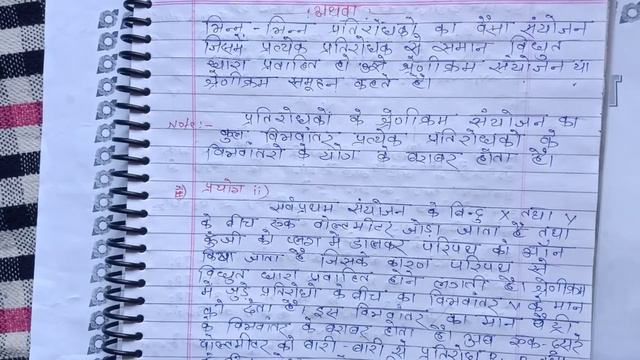 अथवा
भिन्न - भिन्न प्रतिरोधको का वैसा संयोजन
जिसमें प्रत्येक प्रतिरोधक से समान विद्युत
धारा प्रवाहित हो उसे श्रेणीक्रम संयोजन या
श्रेणीक्रम समूहन कहते है।
Note:- प्रतिरोधकों के श्रेणीक्रम संयोजन का
कुल विभवांतर प्रत्येक प्रतिरोधको के
विभवांतरो के योग के बराबर होता है।
प्रयोग ii)
सर्वप्रथम संयोजन के बिन्दु X तथा Y
के बीच एक वोल्टमीटर जोड़ा जाता है तथा
कुंजी को प्लग में डालकर परिपथ को ऑन
किया जाता है जिसके कारण परिपथ से
विद्युत धारा प्रवाहित होने लगती है। श्रेणीक्रम
में जुड़े प्रतिरोधो के बीच का विभवांतर V के मान
को देता है। इस विभवांतर का मान बैट्री
के विभवांतर के बराबर होता है अब एक-दूसरे
वोल्टमीटर को बारी-बारी से